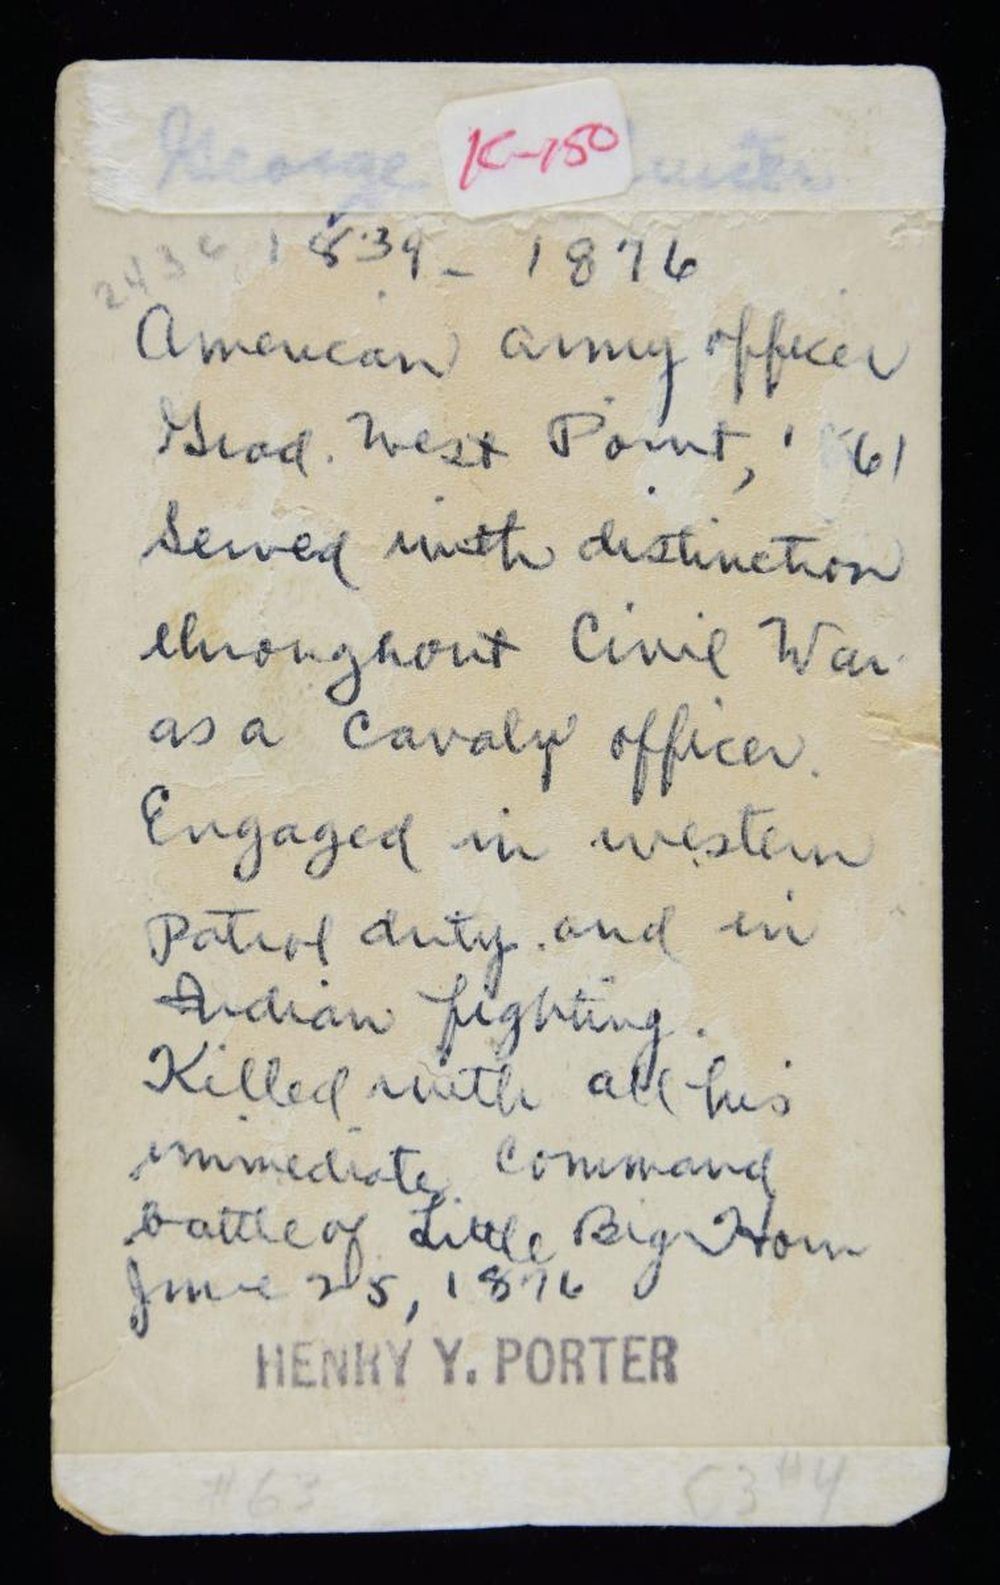 George
K-150
1839 - 1876
2436
American army officer
Grad. West Point, '61
Served with distinction
throughout Civil War
as a Cavalry officer.
Engaged in western
Patrol duty and in
Indian fighting.
Killed with all his
immediate Command
battle of Little Big Horn
June 25, 1876
HENRY Y. PORTER
#63 #4